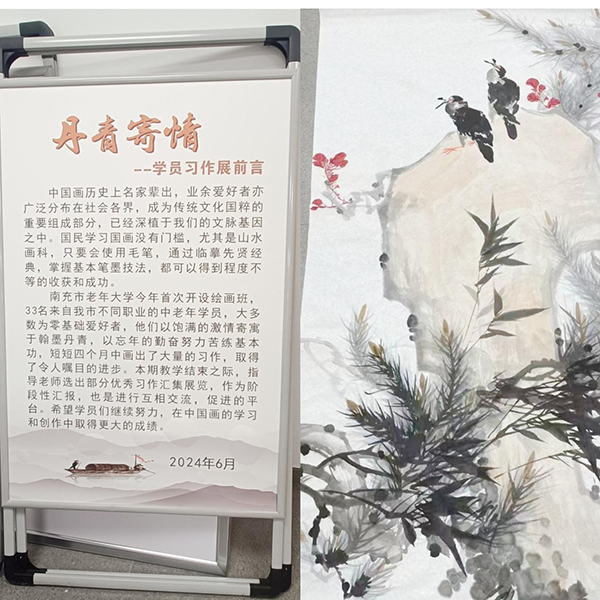 丹青寄情
--学员习作展前言
中国画历史上名家辈出，业余爱好者亦
广泛分布在社会各界，成为传统文化国粹的
重要组成部分，已经深植于我们的文脉基因
之中。国民学习国画没有门槛，尤其是山水
画科，只要会使用毛笔，通过临摹先贤经
典，掌握基本笔墨技法，都可以得到程度不
等的收获和成功。
南充市老年大学今年首次开设绘画班，
33名来自我市不同职业的中老年学员，大多
数为零基础爱好者，他们以饱满的激情寄寓
于翰墨丹青，以忘年的勤奋努力苦练基本
功，短短四个月中画出了大量的习作，取得
了令人瞩目的进步。本期教学结束之际，指
导老师选出部分优秀习作汇集展览，作为阶
段性汇报，也是进行互相交流，促进的平
台。希望学员们继续努力，在中国画的学习
和创作中取得更大的成绩。
2024年6月